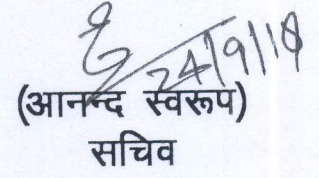 24/9/18
(आनन्द स्वरूप)
सचिव